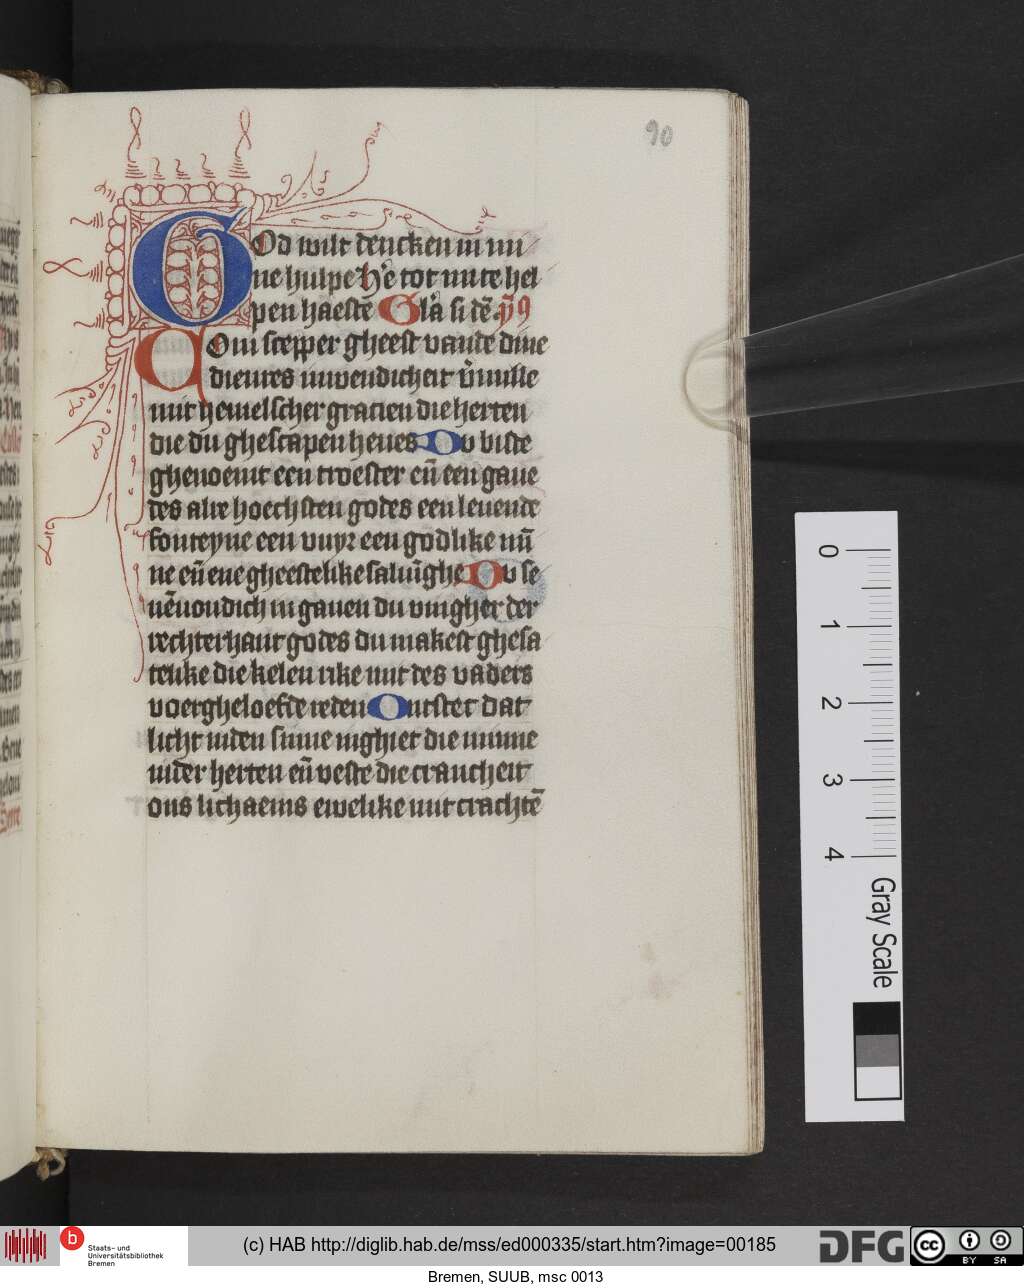 90
God wilt dencken in mi
ne hulpe He̅ tot mi te hel
pen haeste Gl'a si te̅ p̅s9
Com scepper gheest vande dine
dienres inwendicheit v̅vulle
mit hemelscher gracien die herten
die du ghescapen heves Du biste
ghenoemt een troester en̅ een gave
des alre hoechsten godes een levende
fonteyne een vuyr een godlike mi̅
ne en̅ ene gheestelike salvi̅ghe Du se
ve̅voudich in gaven du vingher der
rechterhant godes du makest ghesa
telike die kelen rike mit des vaders
voergheloefde reden Ontstec dat
licht inden sinne inghiet die minne
inder herten en̅ veste die crancheit
ons lichaems ewelike mit crachte̅
0
1
2
3
4
Gray Scale
b
Staats- und
Universitätsbibliothek
Bremen
(c) HAB http://diglib.hab.de/mss/ed000335/start.htm?image=00185
DFG
cc
BY SA
Bremen, SUUB, msc 0013